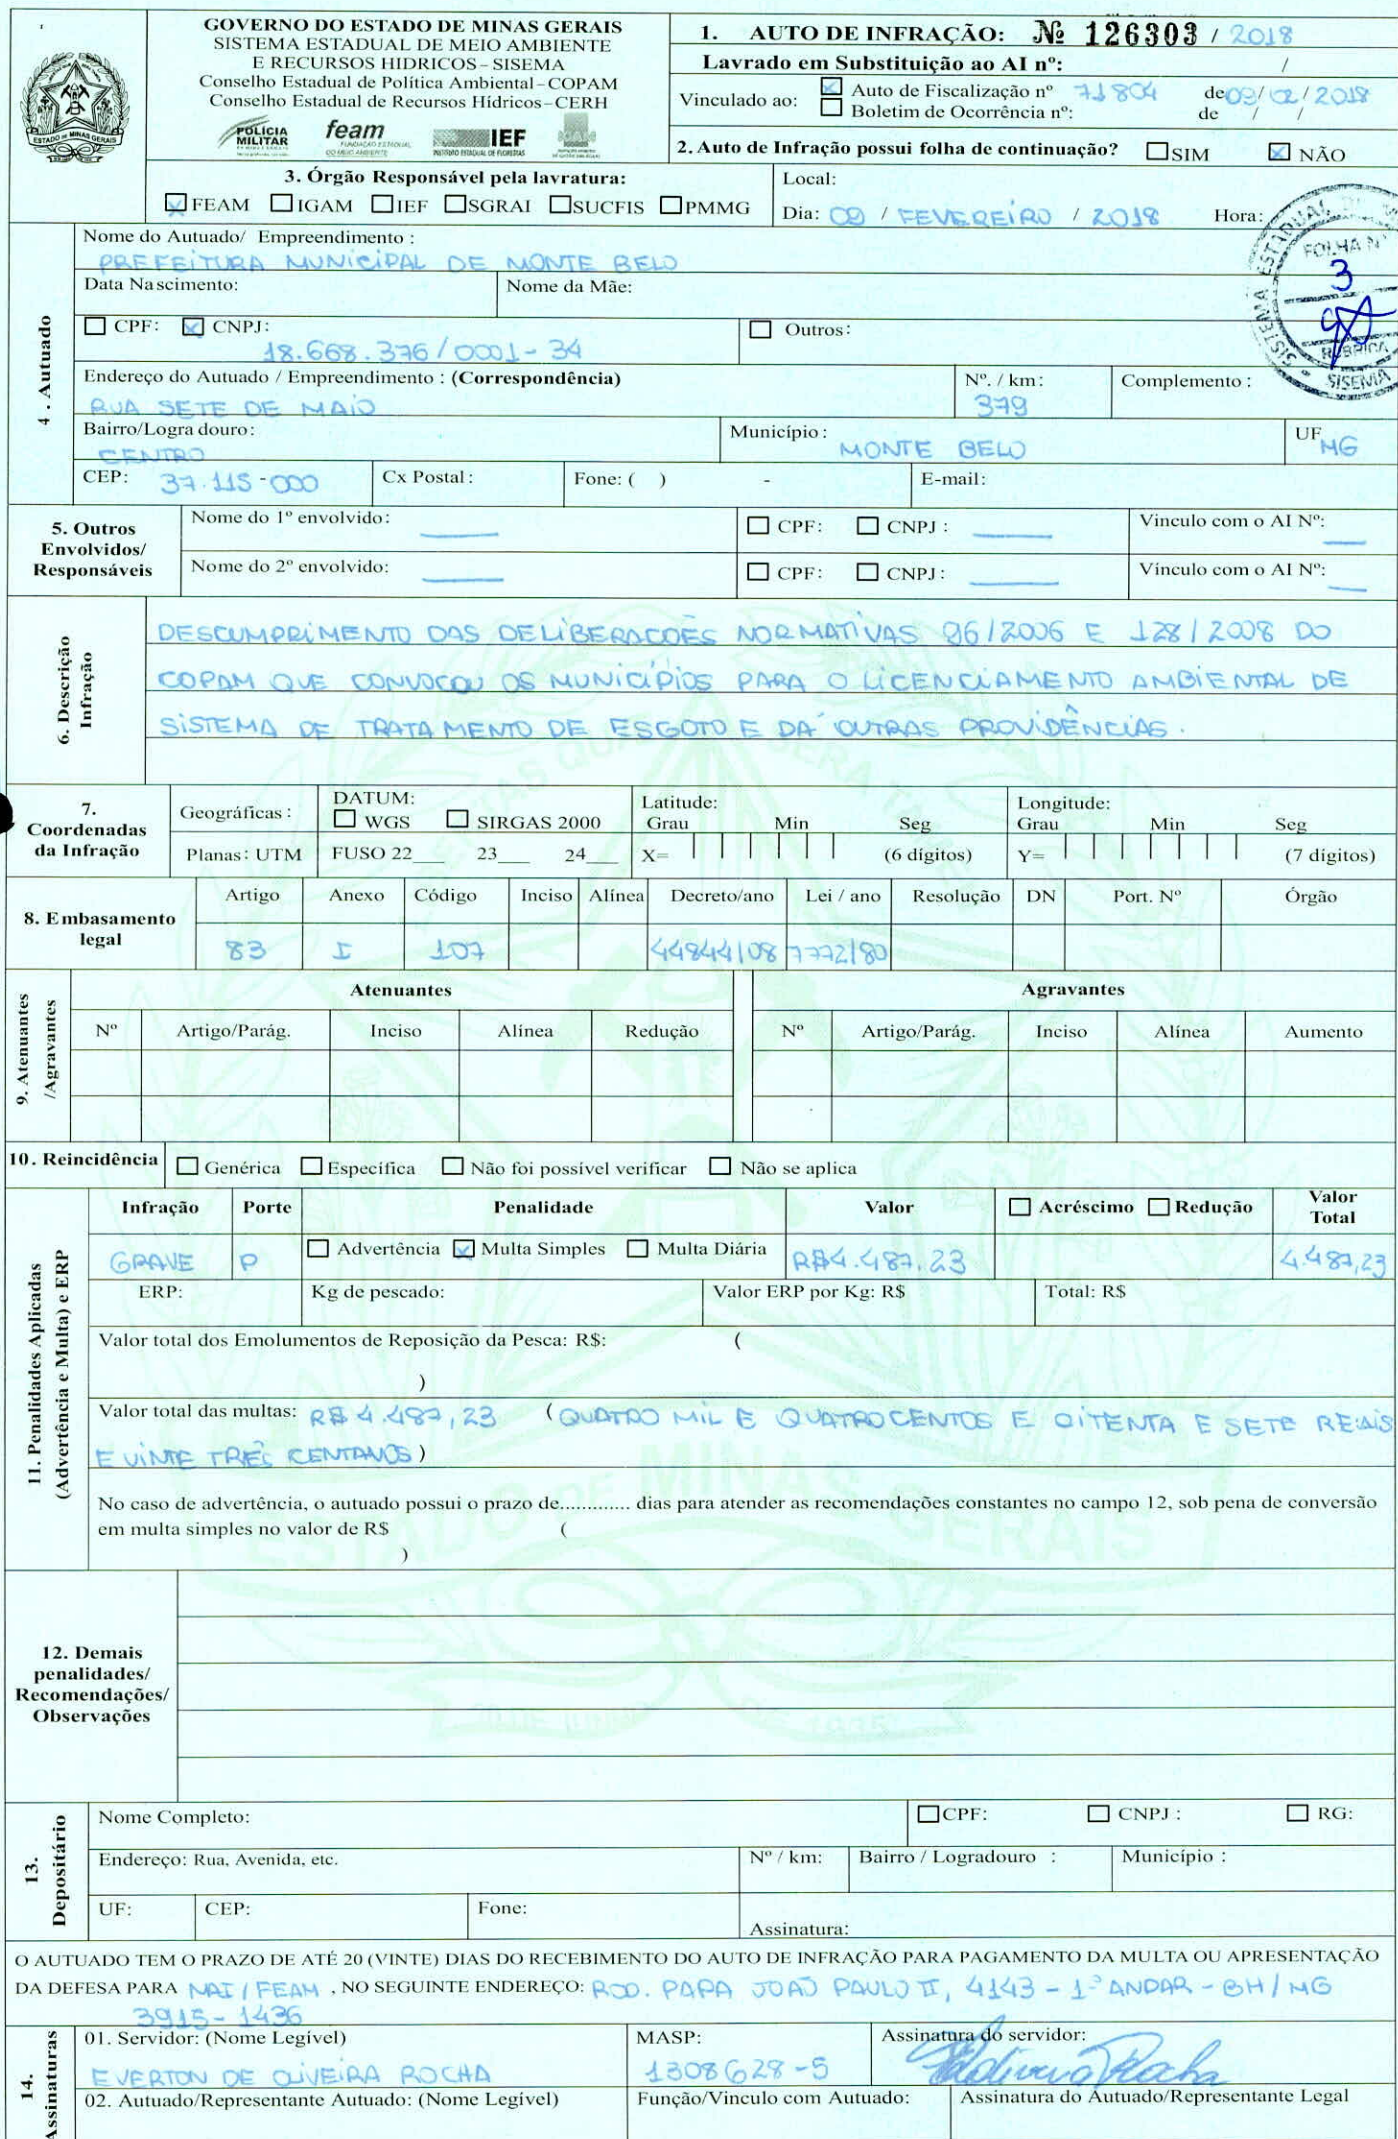 GOVERNO DO ESTADO DE MINAS GERAIS
SISTEMA ESTADUAL DE MEIO AMBIENTE
E RECURSOS HIDRICOS – SISEMA
Conselho Estadual de Política Ambiental – COPAM
Conselho Estadual de Recursos Hídricos – CERH
POLÍCIA MILITAR feam IEF
ESTADO DE MINAS GERAIS
1. AUTO DE INFRAÇÃO: Nº 126303 / 2018
Lavrado em Substituição ao AI nº: /
Vinculado ao: Auto de Fiscalização nº 71804 de 09/02/2018
Boletim de Ocorrência nº: de / /
2. Auto de Infração possui folha de continuação? SIM NÃO
3. Órgão Responsável pela lavratura:
FEAM IGAM IEF SGRAI SUCFIS PMMG
Local:
Dia: 09 / FEVEREIRO / 2018 Hora:
FOLHA Nº
3
RUBRICA
SISEMA
4. Autuado
Nome do Autuado/ Empreendimento :
PREFEITURA MUNICIPAL DE MONTE BELO
Data Nascimento: Nome da Mãe:
CPF: CNPJ: Outros:
18.668.376/0001-34
Endereço do Autuado / Empreendimento : (Correspondência) Nº. / km: Complemento :
RUA SETE DE MAIO 379
Bairro/Logradouro: Município: MONTE BELO UF MG
CENTRO
CEP: 37.115-000 Cx Postal: Fone: ( ) - E-mail:
5. Outros Envolvidos/ Responsáveis
Nome do 1º envolvido: CPF: CNPJ : Vinculo com o AI Nº:
Nome do 2º envolvido: CPF: CNPJ : Vínculo com o AI Nº:
6. Descrição Infração
DESCUMPRIMENTO DAS DELIBERACOES NORMATIVAS 96/2006 E 128/2008 DO
COPAM QUE CONVOCOU OS MUNICÍPIOS PARA O LICENCIAMENTO AMBIENTAL DE
SISTEMA DE TRATAMENTO DE ESGOTO E DÁ OUTRAS PROVIDÊNCIAS.
7. Coordenadas da Infração
Geográficas : DATUM: WGS SIRGAS 2000 Latitude: Grau Min Seg Longitude: Grau Min Seg
Planas: UTM FUSO 22 23 24 X= (6 dígitos) Y= (7 dígitos)
8. Embasamento legal
Artigo Anexo Código Inciso Alínea Decreto/ano Lei / ano Resolução DN Port. Nº Órgão
83 I 107 44844/08 7772/80
9. Atenuantes /Agravantes
Atenuantes Agravantes
Nº Artigo/Parág. Inciso Alínea Redução Nº Artigo/Parág. Inciso Alínea Aumento
10. Reincidência Genérica Específica Não foi possível verificar Não se aplica
11. Penalidades Aplicadas (Advertência e Multa) e ERP
Infração Porte Penalidade Valor Acréscimo Redução Valor Total
GRAVE P Advertência Multa Simples Multa Diária R$4.487,23 4.487,23
ERP: Kg de pescado: Valor ERP por Kg: R$ Total: R$
Valor total dos Emolumentos de Reposição da Pesca: R$: (
)
Valor total das multas: R$ 4.487,23 (QUATRO MIL E QUATROCENTOS E OITENTA E SETE REAIS
E VINTE TRÊS CENTAVOS)
No caso de advertência, o autuado possui o prazo de............. dias para atender as recomendações constantes no campo 12, sob pena de conversão
em multa simples no valor de R$ (
)
MINAS GERAIS
ESTADO DE
12. Demais penalidades/ Recomendações/ Observações
13. Depositário
Nome Completo: CPF: CNPJ : RG:
Endereço: Rua, Avenida, etc. Nº / km: Bairro / Logradouro : Município :
UF: CEP: Fone: Assinatura:
O AUTUADO TEM O PRAZO DE ATÉ 20 (VINTE) DIAS DO RECEBIMENTO DO AUTO DE INFRAÇÃO PARA PAGAMENTO DA MULTA OU APRESENTAÇÃO
DA DEFESA PARA NAI / FEAM , NO SEGUINTE ENDEREÇO: ROD. PAPA JOAO PAULO II, 4143 - 1º ANDAR - BH / MG
3915-1436
14. Assinaturas
01. Servidor: (Nome Legível) MASP: Assinatura do servidor:
EVERTON DE OLIVEIRA ROCHA 1308628-5
02. Autuado/Representante Autuado: (Nome Legível) Função/Vinculo com Autuado: Assinatura do Autuado/Representante Legal